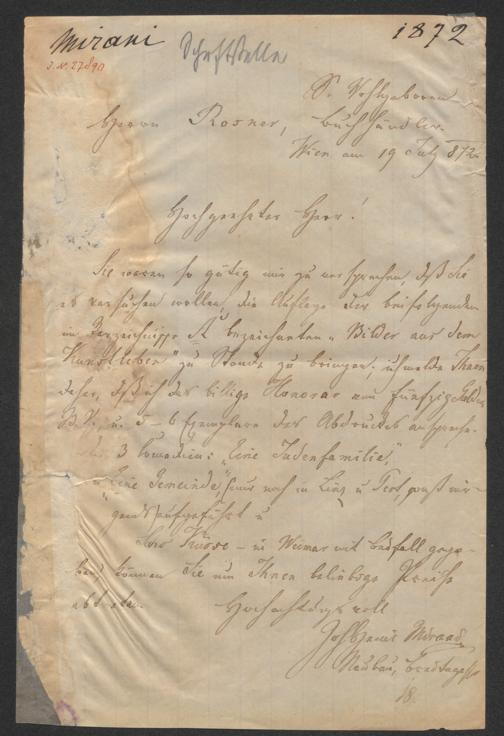 Mirani Schriftsteller 1872
J. N. 27890
Sr. Wohlgeboren
Herrn Rosner, Buchhändler.
Wien am 19 July 872
Hochgeehrter Herr!
Sie waren so gütig mir zu versprechen, daß Sie
es versuchen wollen, die Auflage der beifolgenden
im Verzeichniße A bezeichneten „Bilder aus dem
Kunstleben" zu Stande zu bringen; ich melde Ihnen
daher, daß ich das billige Honorar von fünfzig Gulden
B.V. u. 5–6 Exemplare des Abdruckes anspreche.
3 Comödien: „Eine Judenfamilie",
„Eine Gemeinde", (nur noch in Linz u Pest, sonst nir-
gends) aufgeführt u
Küsse – in Weimar mit Beifall gege-
ben können Sie um Ihnen beliebige Preise
abtreten.
Hochachtungsvoll
Joh Heinr Mirani
Neubau,
18.